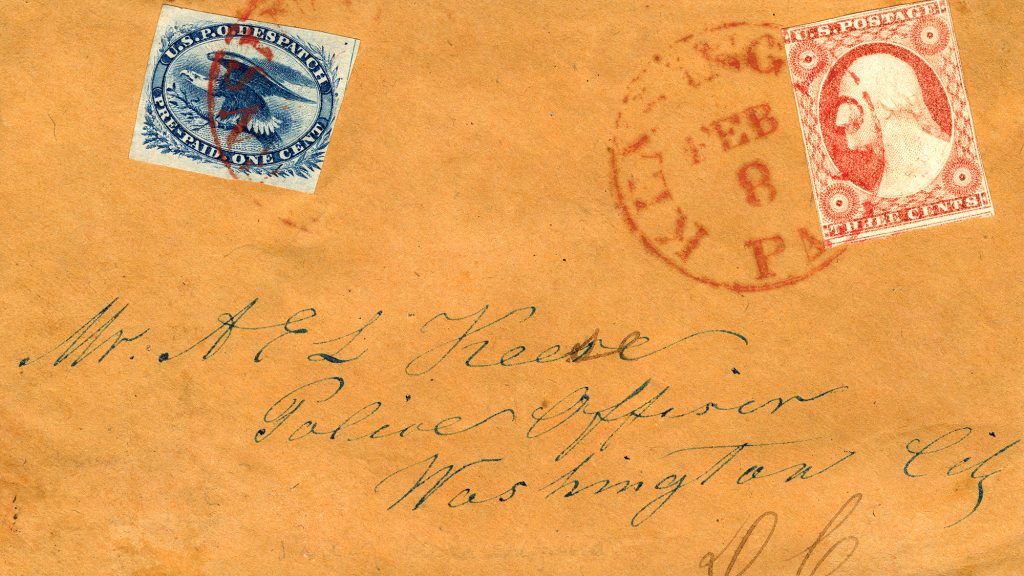 U.S.P.O. DESPATCH
PRE-PAID ONE CENT
FEB
8
PA
U.S. POSTAGE
THREE CENTS
Mr. A E L Keese
Police Officer
Washington City
D C